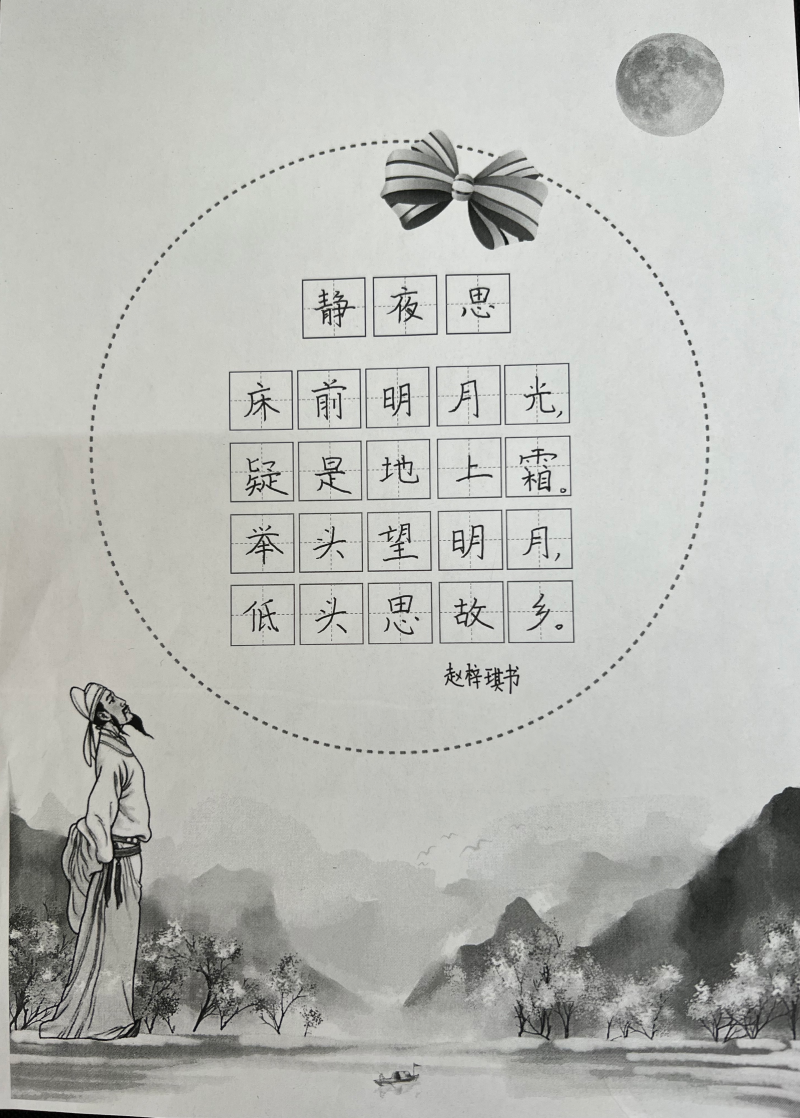 静夜思
床前明月光,
疑是地上霜。
举头望明月,
低头思故乡。
赵梓琪书